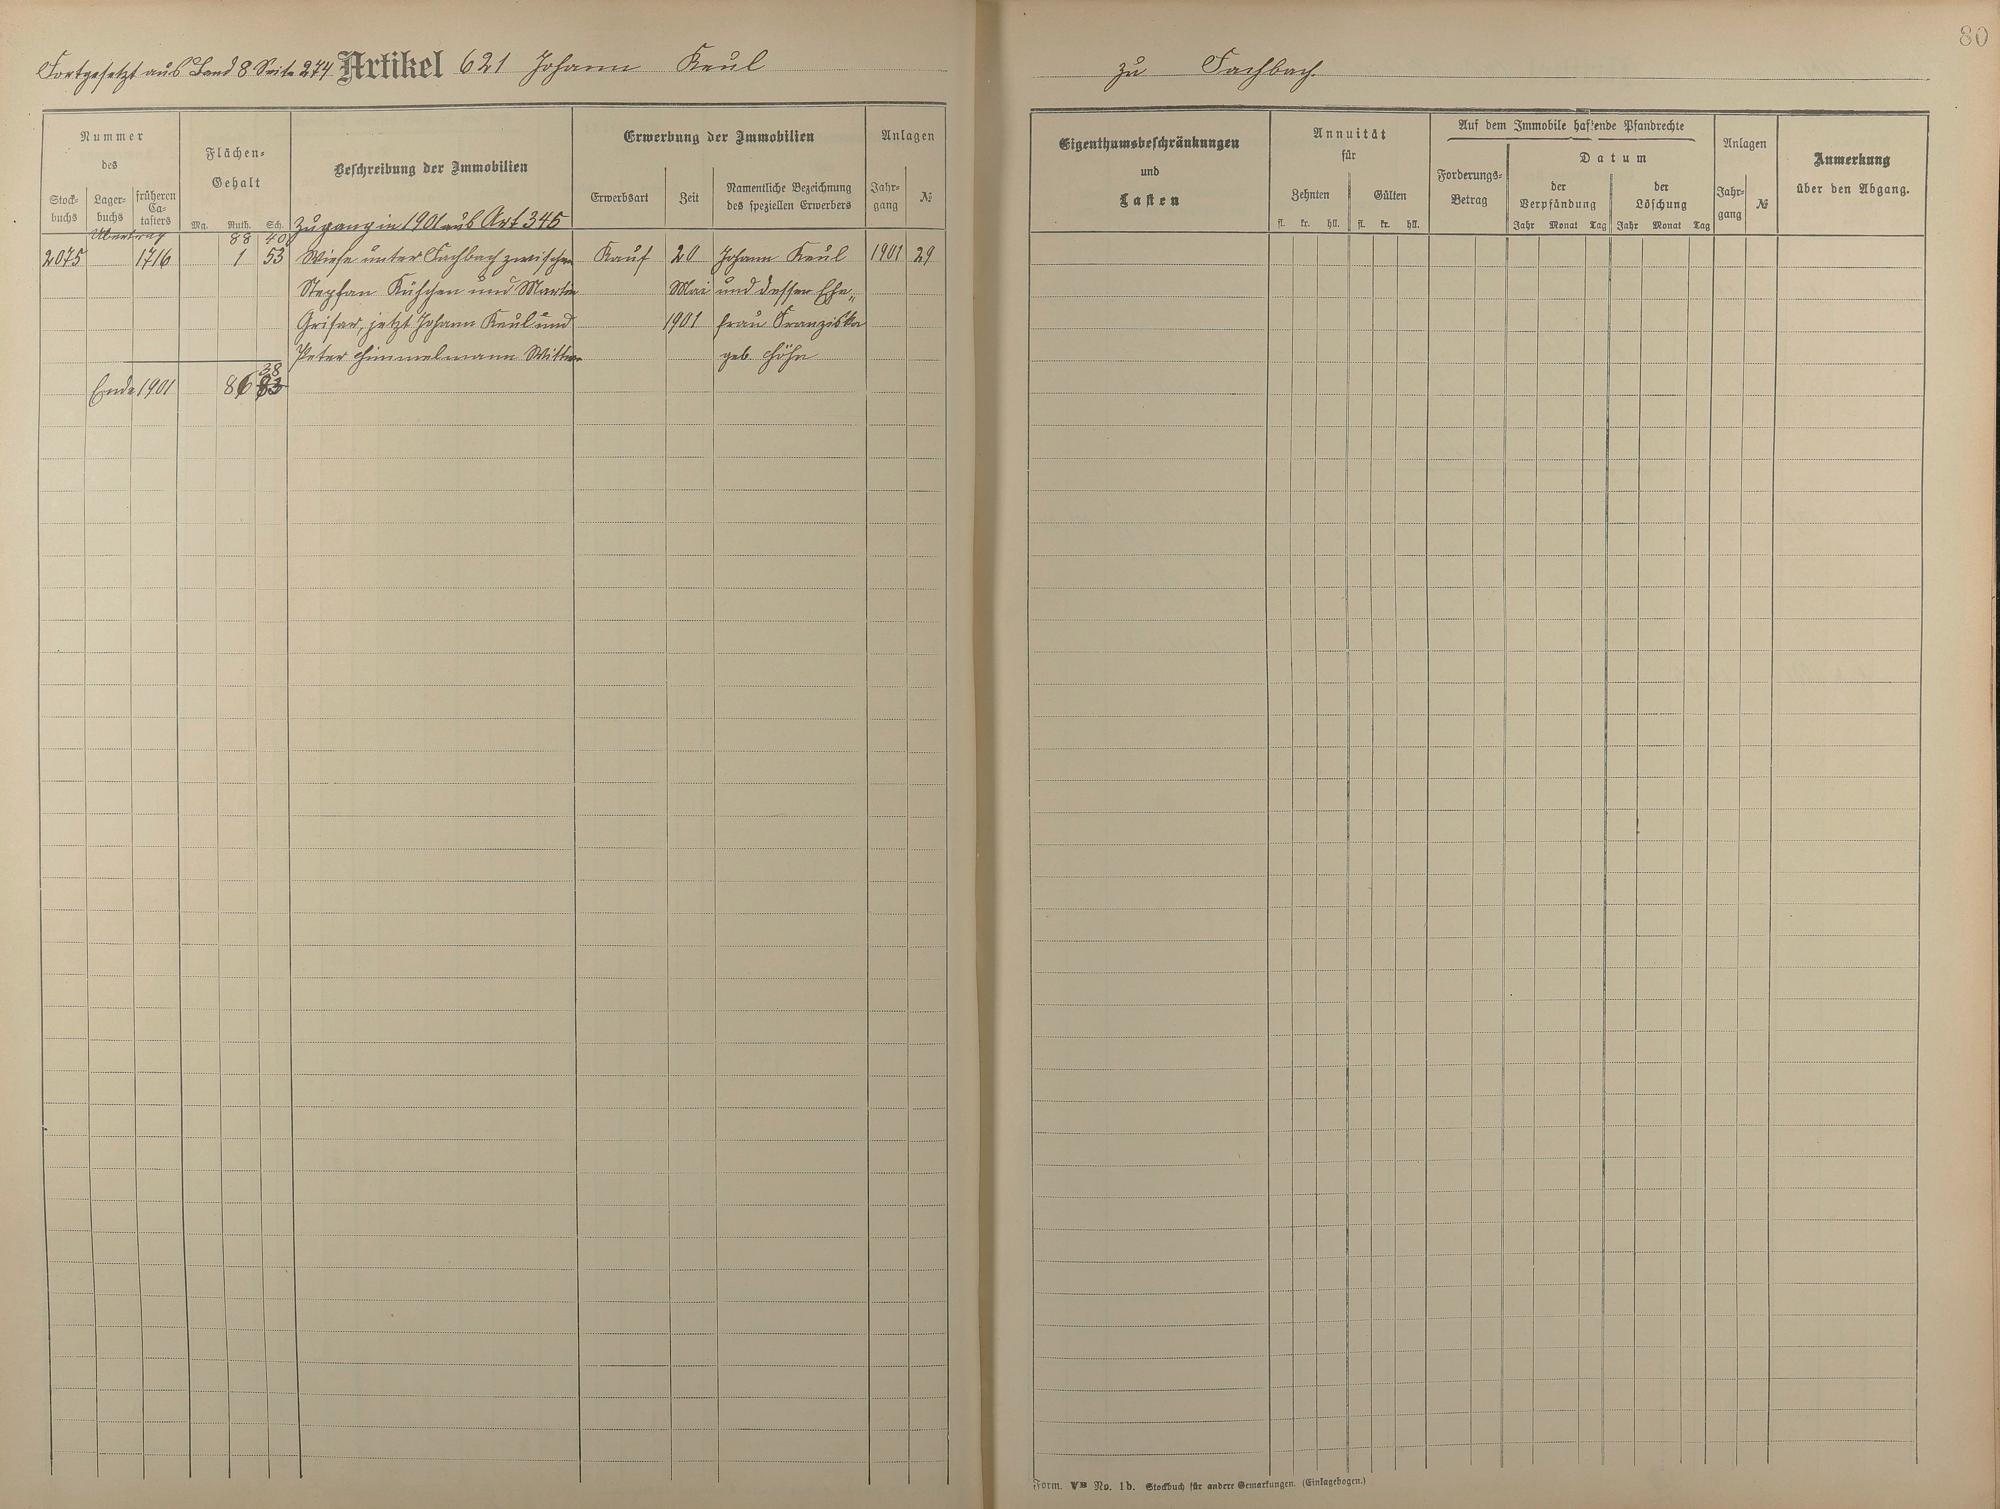 80
Fortgesetzt aus Band 8 Seite 274 Artikel 621 Johann Keul
zu Fachbach.
Nummer
des
Stock-
buchs
Lager-
buchs
früheren
Ca-
tasters
Flächen-
Gehalt
Mg. Ruth. Sch.
Beschreibung der Immobilien
Erwerbung der Immobilien
Erwerbsart
Zeit
Namentliche Bezeichnung
des speziellen Erwerbers
Anlagen
Jahr-
gang
№
Zugang in 1901 aus Art 345
Übertrag 88 40
2075 1716 1 53 Wiese unter Fachbach zwischen Kauf 20 Johann Keul 1901 29
Stephan Küschen und Martin Mai und dessen Ehe„
Grisar, jetzt Johann Keul und 1901 frau Franziska
Peter Himmelmann Wittwe geb. Höhn
38
Ende 1901 86 83
Eigenthumsbeschränkungen
und
Lasten
Annuität
für
Zehnten
fl. kr. hll.
Gülten
fl. kr. hll.
Auf dem Immobile haftende Pfandrechte
Forderungs-
Betrag
Datum
der
Verpfändung
Jahr Monat Tag
der
Löschung
Jahr Monat Tag
Anlagen
Jahr-
gang
№
Anmerkung
über den Abgang.
Form. VB No. 1b. Stockbuch für andere Gemarkungen. (Einlagebogen.)